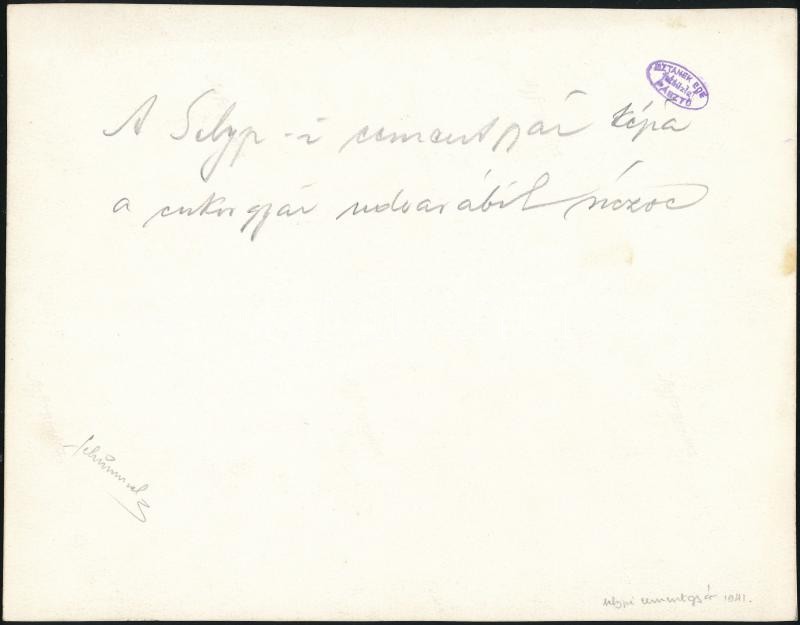 A Selyp-i cementgyár képe
a cukorgyár udvarából nézve
OXTANEK EDE
PÁSZTÓ
selypi cementgyár 1941.